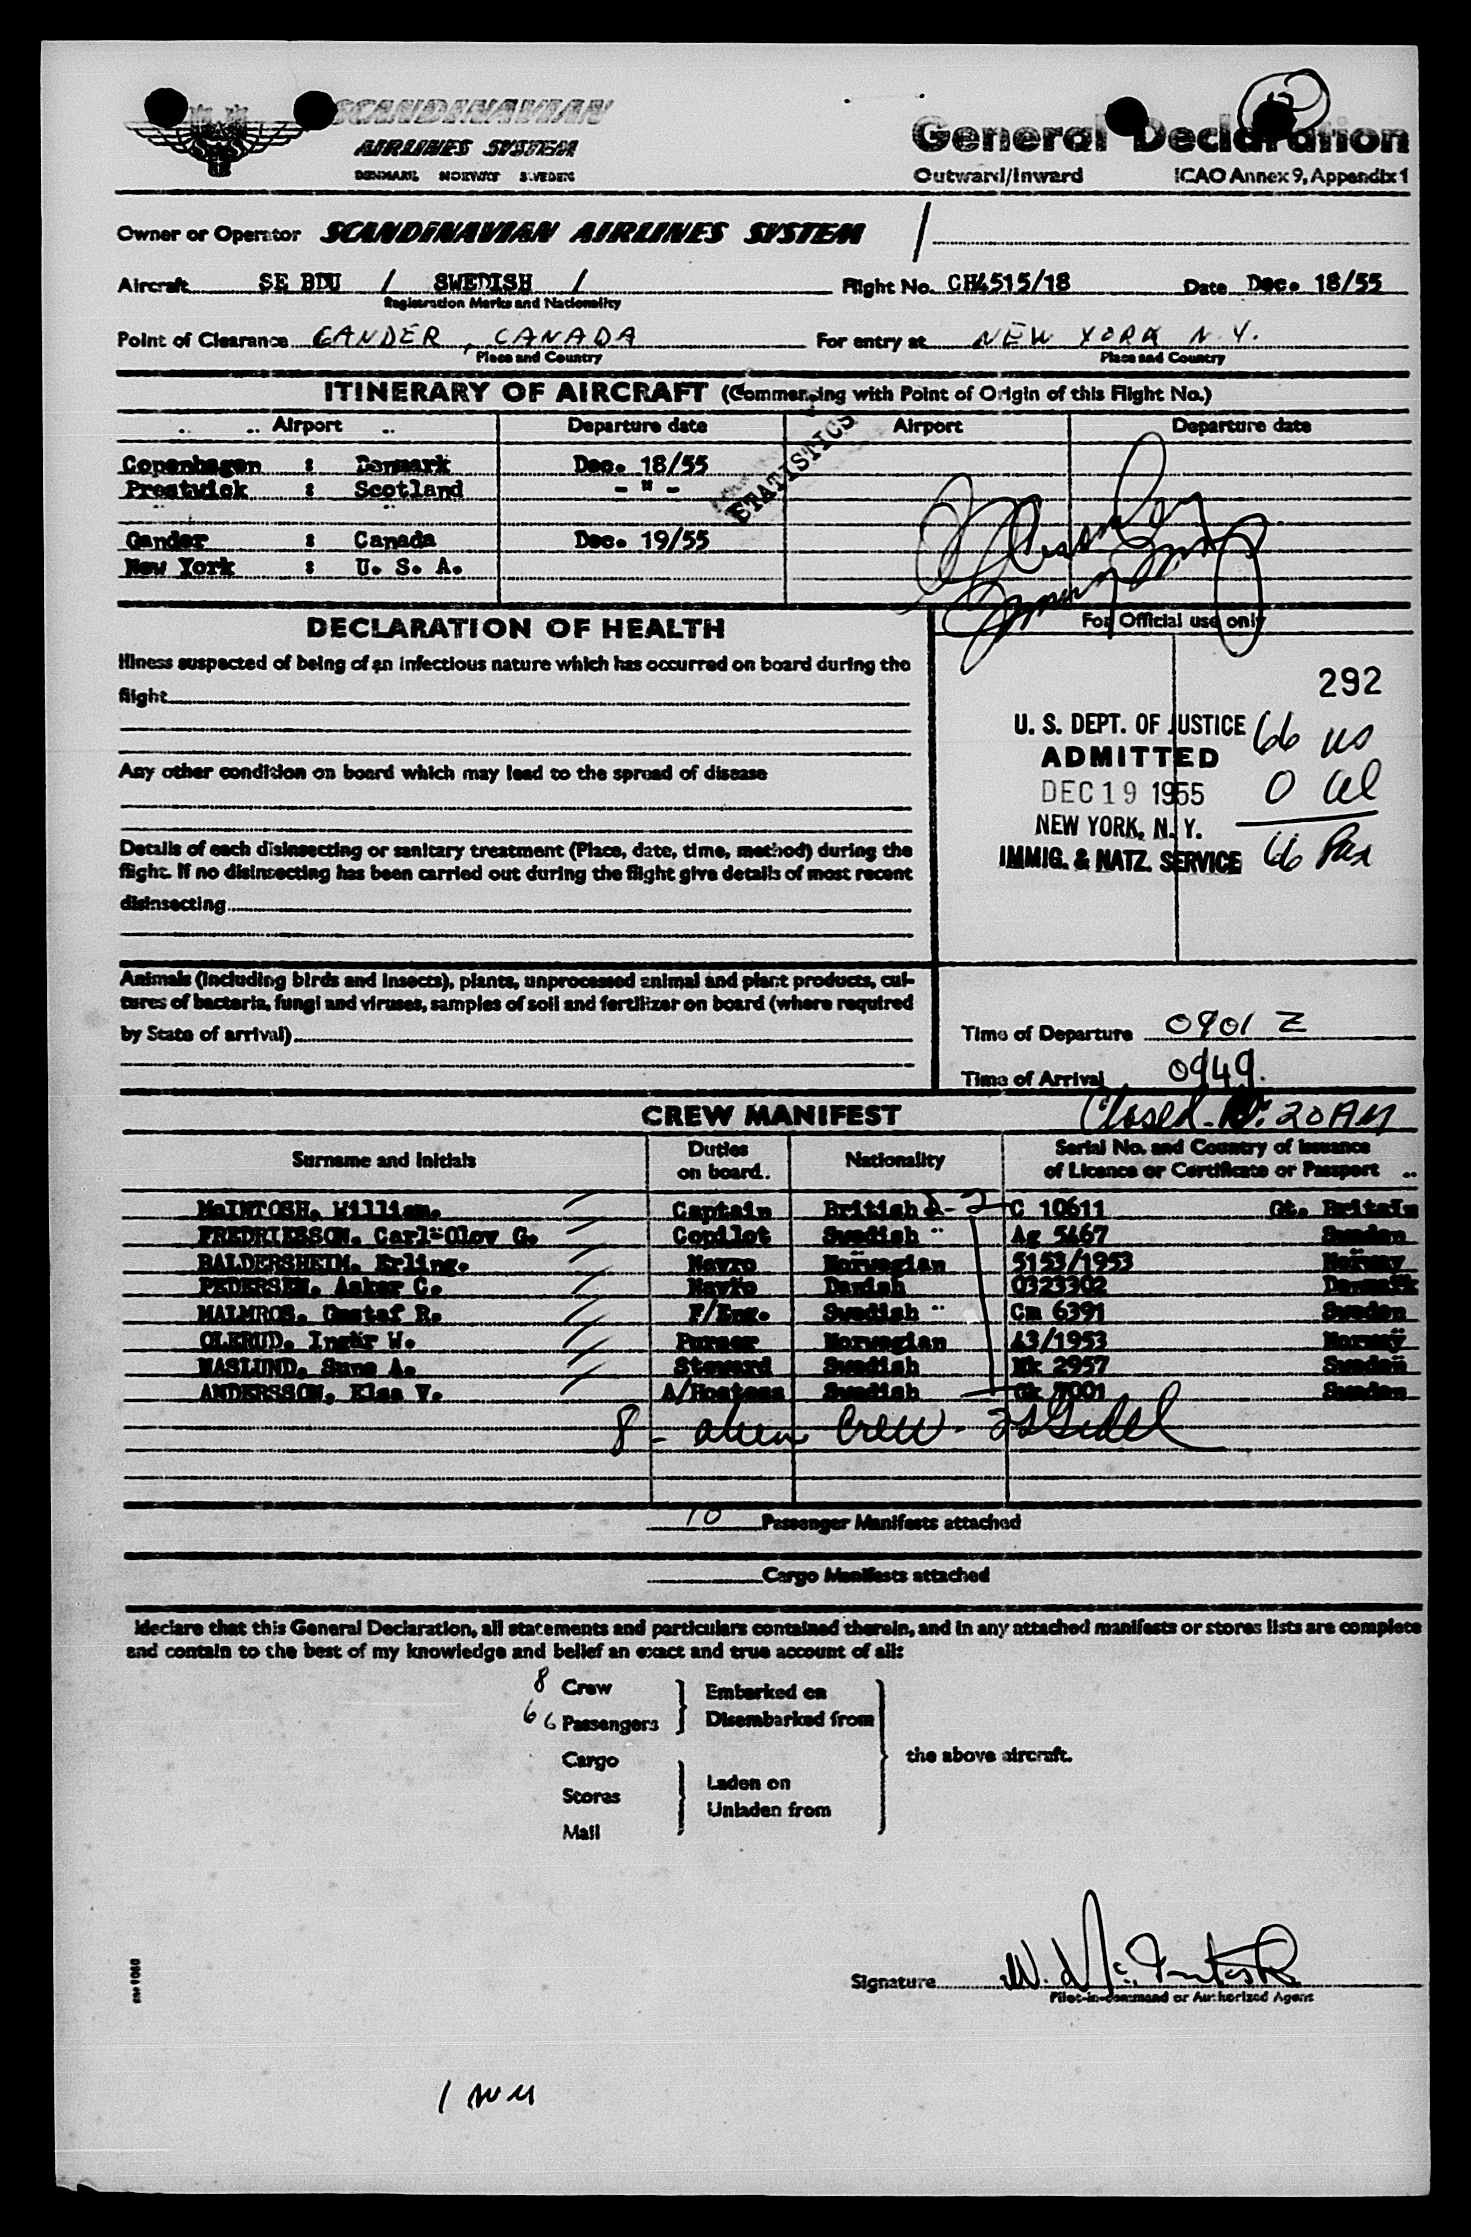 SCANDINAVIAN
AIRLINES SYSTEM
DENMARK NORWAY SWEDEN
General Declaration
Outward/Inward ICAO Annex 9, Appendix 1
Owner or Operator SCANDINAVIAN AIRLINES SYSTEM /
Aircraft SE BDU / SWEDISH / Flight No. CH4515/18 Date Dec. 18/55
Registration Marks and Nationality
Point of Clearance GANDER, CANADA For entry at NEW YORK N.Y.
Place and Country Place and Country
ITINERARY OF AIRCRAFT (Commencing with Point of Origin of this Flight No.)
Airport Departure date Airport Departure date
STATISTICS
Copenhagen : Denmark Dec. 18/55
Prestwick : Scotland - " -
Gander : Canada Dec. 19/55
New York : U. S. A.
DECLARATION OF HEALTH
For Official use only
Illness suspected of being of an infectious nature which has occurred on board during the
flight
292
U. S. DEPT. OF JUSTICE 66 US
ADMITTED
DEC 19 1955 0 al
NEW YORK, N. Y.
IMMIG. & NATZ. SERVICE 66 Pax
Any other condition on board which may lead to the spread of disease
Details of each disinsecting or sanitary treatment (Place, date, time, method) during the
flight. If no disinsecting has been carried out during the flight give details of most recent
disinsecting
Animals (including birds and insects), plants, unprocessed animal and plant products, cul-
tures of bacteria, fungi and viruses, samples of soil and fertilizer on board (where required
by State of arrival)
Time of Departure 0901 Z
Time of Arrival 0949.
CREW MANIFEST Closed - 10:20 AM
Surname and Initials Duties on board. Nationality Serial No. and Country of Issuance of Licence or Certificate or Passport
McINTOSH, William. Captain British D-2 C 10611 Gt. Britain
FREDRIKSSON, Carl-Olov G. Copilot Swedish Ag 5467 Sweden
BALDERSHEIM, Erling. Navro Norwegian 5153/1953 Norway
PEDERSEN, Asker C. Navro Danish 0323302 Denmark
MALMROS, Gustaf R. F/Eng. Swedish Cm 6391 Sweden
OLERUD, Ingar W. Purser Norwegian 43/1953 Norway
MASLUND, Sune A. Steward Swedish Mk 2957 Sweden
ANDERSSON, Elsa V. A/Hostess Swedish Gk 7001 Sweden
8 - alien Crew -
10 Passenger Manifests attached
Cargo Manifests attached
I declare that this General Declaration, all statements and particulars contained therein, and in any attached manifests or stores lists are complete
and contain to the best of my knowledge and belief an exact and true account of all:
8 Crew Embarked on
66 Passengers Disembarked from
Cargo the above aircraft.
Stores Laden on
Unladen from
Mail
Signature W. McIntosh
Pilot-in-command or Authorized Agent